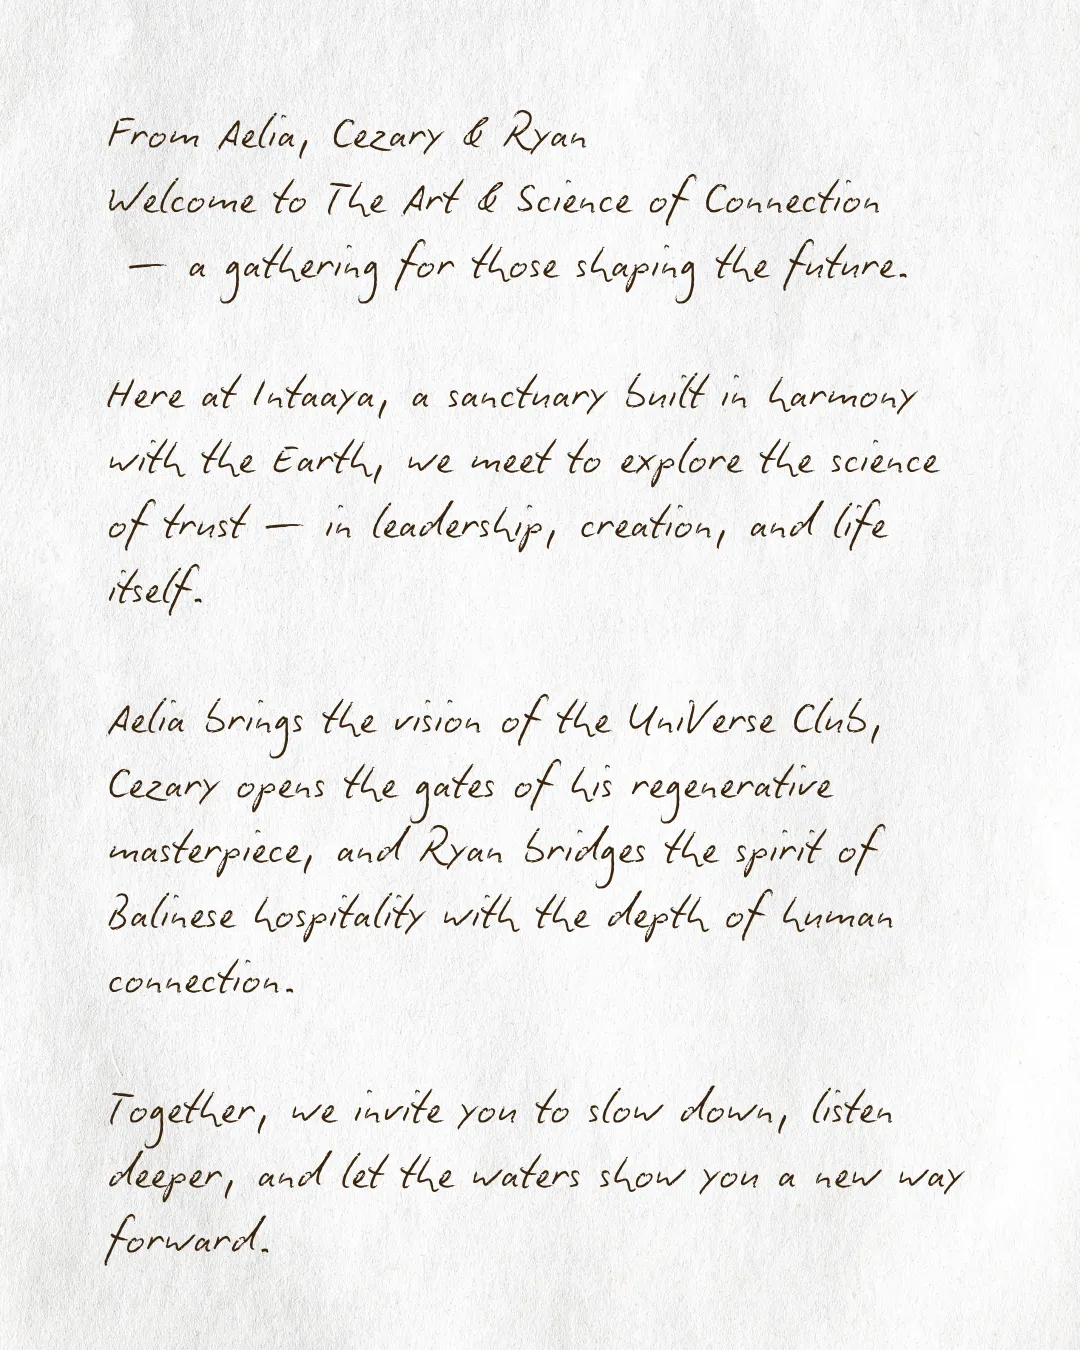 From Aelia, Cezary & Ryan
Welcome to The Art & Science of Connection
— a gathering for those shaping the future.
Here at Intaaya, a sanctuary built in harmony
with the Earth, we meet to explore the science
of trust — in leadership, creation, and life
itself.
Aelia brings the vision of the UniVerse Club,
Cezary opens the gates of his regenerative
masterpiece, and Ryan bridges the spirit of
Balinese hospitality with the depth of human
connection.
Together, we invite you to slow down, listen
deeper, and let the waters show you a new way
forward.